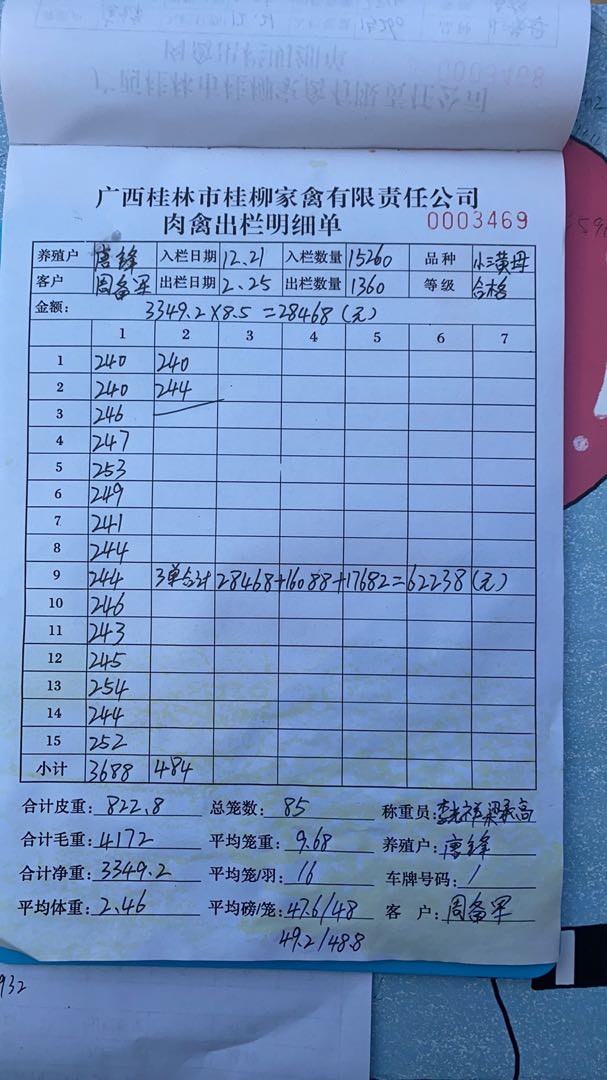 广西桂林市桂柳家禽有限责任公司
肉禽出栏明细单 0003469
养殖户 唐锋 入栏日期 12.21 入栏数量 15260 品种 小三黄母
客户 周备军 出栏日期 2.25 出栏数量 1360 等级 合格
金额: 3349.2×8.5=28468(元)
1 2 3 4 5 6 7
1 240 240
2 240 244
3 246
4 247
5 253
6 249
7 241
8 244
9 244 3单合计 28468+16088+17682=62238(元)
10 246
11 243
12 245
13 254
14 244
15 252
小计 3688 484
合计皮重: 822.8 总笼数: 85 称重员:
合计毛重: 4172 平均笼重: 9.68 养殖户: 唐锋
合计净重: 3349.2 平均笼/羽: 16 车牌号码: /
平均体重: 2.46 平均磅/笼: 47.6/48 客 户: 周备军
49.2/48.8
932